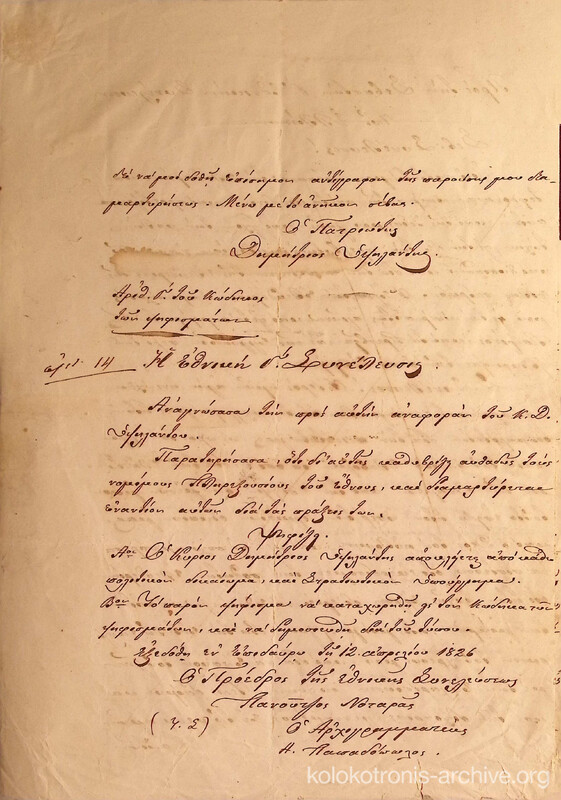 διὰ νὰ μοὶ δοθῇ ἐπίσημον ἀντίγραφον τῆς παρούσης μου δια-
μαρτυρήσεως. Μένω μὲ τὸ ἀνῆκον σέβας.
Ὁ Πατριώτης
Δημήτριος Ὑψηλάντης.
Ἀριθ. γ΄. τοῦ Κώδικος
τῶν ψηφισμάτων
ἀρι. 14 Ἡ Ἐθνικὴ γ΄. Συνέλευσις.
Ἀναγνώσασα τὴν πρὸς αὐτὴν ἀναφορὰν τοῦ Κ. Δ.
Ὑψηλάντου.
Παρατηρήσασα, ὅτι δι' αὐτῆς καθυβρίζει αὐθαδῶς τοὺς
νομίμους πληρεξουσίους τοῦ ἔθνους, καὶ διαμαρτύρεται
ἐναντίον αὐτῶν διὰ τὰς πράξεις των.
Ψηφίζει.
Αον Ὁ Κύριος Δημήτριος Ὑψηλάντης ἀποκλείεται ἀπὸ κάθε
πολιτικὸν δικαίωμα, καὶ Στρατιωτικὸν ὑπούργημα.
Βον Τὸ παρὸν ψήφισμα νὰ καταχωρηθῇ εἰς τὸν κώδικα τῶν
ψηφισμάτων, καὶ νὰ δημοσιευθῇ διὰ τοῦ τύπου.
Ἐξεδόθη ἐν Ἐπιδαύρῳ τῇ 12. ἀπριλίου 1826
Ὁ Πρόεδρος τῆς ἐθνικῆς Συνελεύσεως
Πανοῦτζος Νοταρᾶς
(Τ. Σ) Ὁ Ἀρχιγραμματεὺς
Α. Παπαδόπουλος.
kolokotronis-archive.org